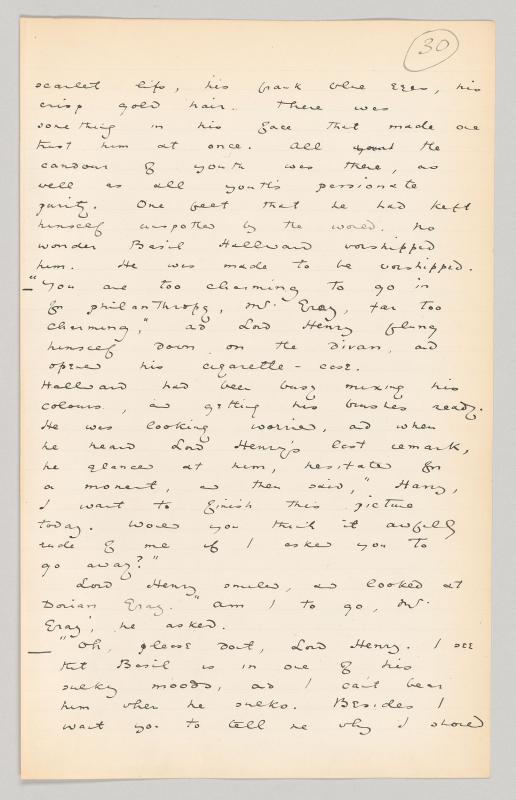 30
scarlet lips, his frank blue eyes, his
crisp gold hair. There was
something in his face that made one
trust him at once. All the
candour of youth was there, as
well as all youth's passionate
purity. One felt that he had kept
himself unspotted by the world. No
wonder Basil Hallward worshipped
him. He was made to be worshipped.
"You are too charming to go in
for philanthropy, Mr. Gray, far too
charming," and Lord Henry flung
himself down on the divan, and
opened his cigarette-case.
Hallward had been busy mixing his
colours, and getting his brushes ready.
He was looking worried, and when
he heard Lord Henry's last remark,
he glanced at him, hesitated for
a moment, and then said, "Harry,
I want to finish this picture
today. Would you think it awfully
rude of me if I asked you to
go away?"
Lord Henry smiled, and looked at
Dorian Gray. "Am I to go, Mr.
Gray', he asked.
"Oh, please don't, Lord Henry. I see
that Basil is in one of his
sulky moods, and I can't bear
him when he sulks. Besides I
want you to tell me why I should